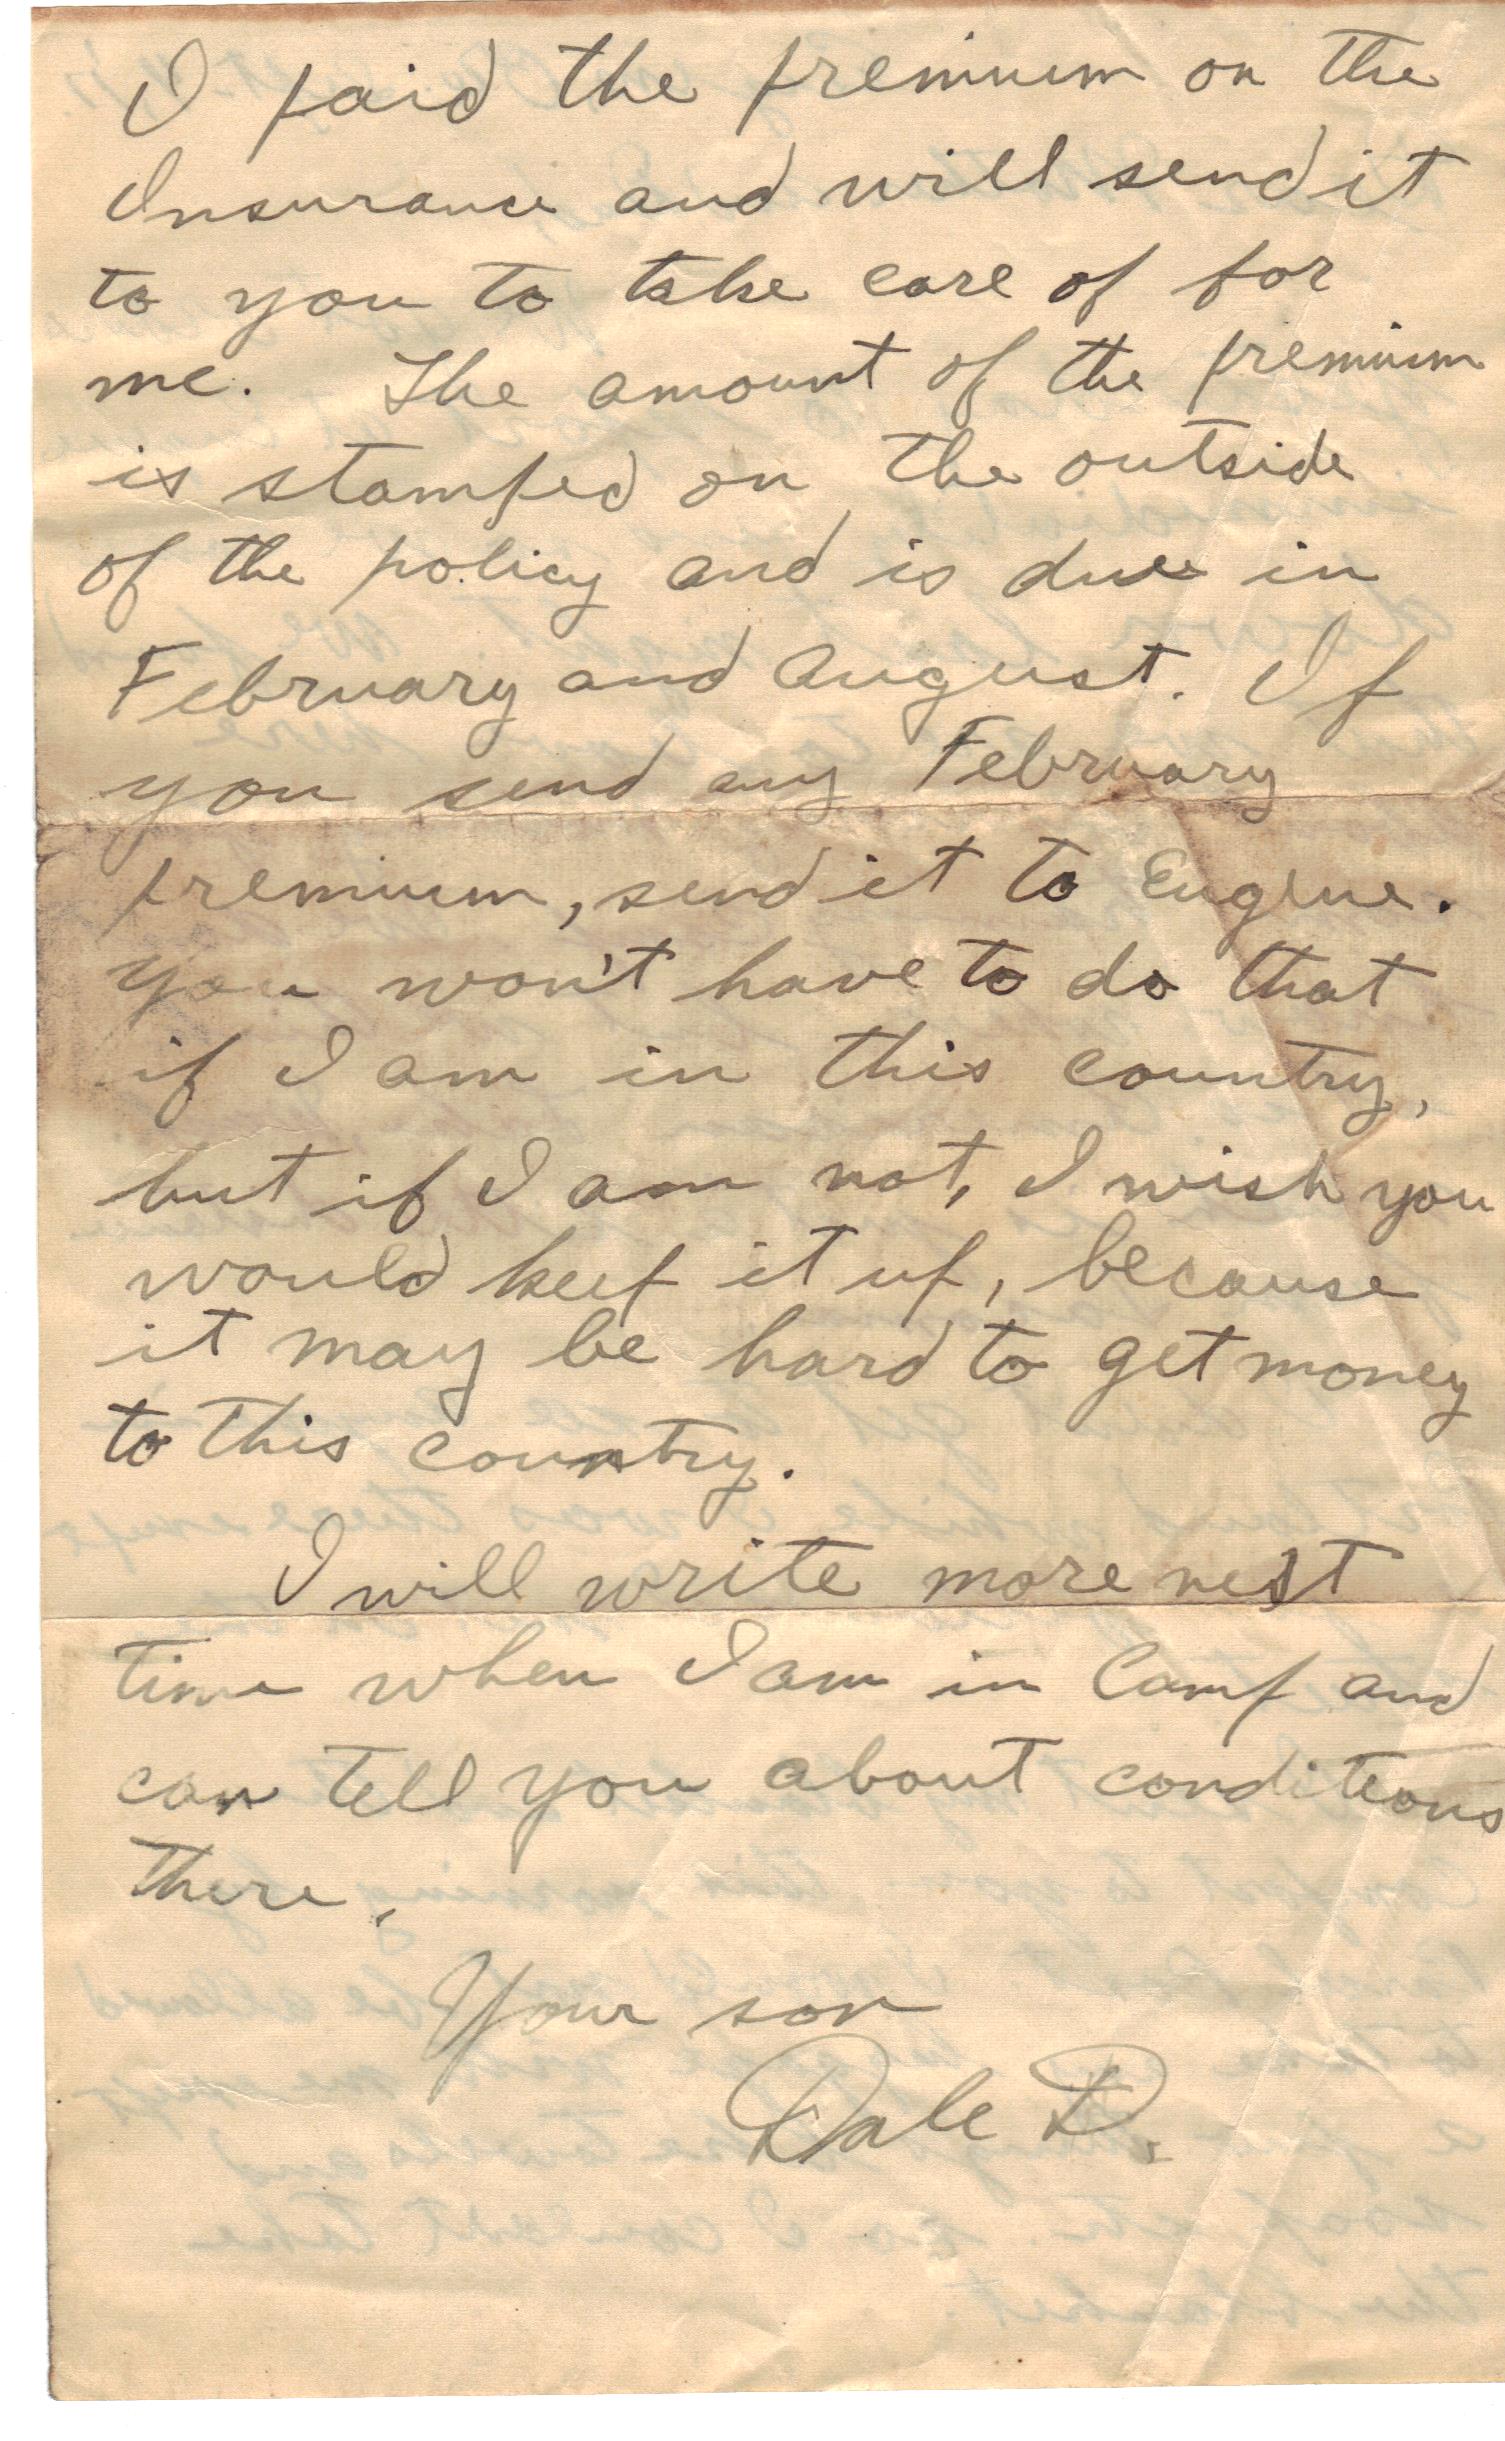 I paid the premium on the
Insurance and will send it
to you to take care of for
me. The amount of the premium
is stamped on the outside
of the policy and is due in
February and August. If
you send any February
premium, send it to Eugene.
you won't have to do that
if I am in this country,
but if I am not, I wish you
would keep it up, because
it may be hard to get money
to this country.
I will write more next
time when I am in Camp and
can tell you about conditions
there.
Your son
Dale D.